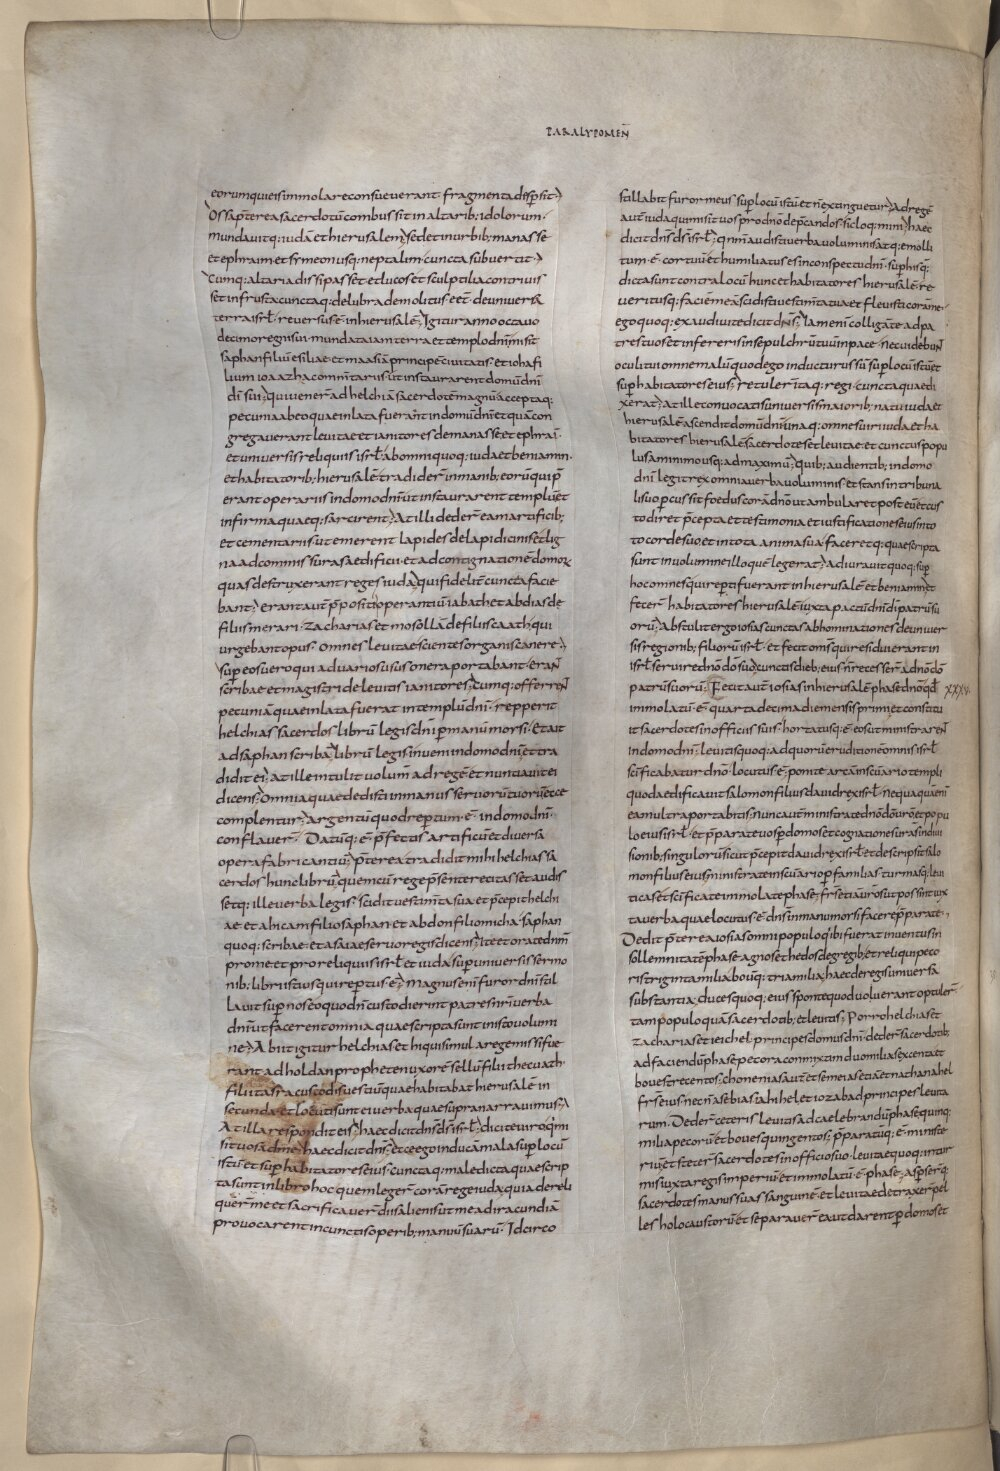 PARALYPOMEN̄
eorum qui eis immolare consueverant fragmenta disp̄sit;
Ossa p̄terea sacerdotū combussit in altarib; idolorum·
mundavitq; iudā et hierusalem; sed et in urbib; manasse
et ephraim et symeon usq; neptalim· cuncta subvertit·
Cumq; altaria dissipasset et lucos et sculptilia contrivis
set in frusta cunctaq; delubra demolitus eēt· de universa
terra isrl̄· reversus ē in hierusalē; Igitur anno octavo
decimo regni sui· mundata iam terra et templo dn̄i misit
saphan filiū eseliae et maasiā principē civitatis· et ioha fi
lium ioaaz ha commn̄tariis ut instaurarent domū dn̄i
di sui; Qui vener̄ ad helchiā sacerdotē magnū acceptaq;
pecunia ab eo quae inlata fuerant in domū dn̄i· et quā con
gregaverant levitae et ianitores de manasse et ephrai·
et universis reliquiis isrl̄· ab omni quoq; iuda et beniamin·
et habitatorib; hierusalē tradider̄ in manib; eorū qui p̄
erant operariis in domo dn̄i· ut instaurarent templū et
infirma quaeq; sarcirent; At illi deder̄ eam artificib;
et cementariis· ut emerent lapides de lapidicinis et lig
na ad commissuras aedificii· et ad contignationē domorū
quas destruxerant reges iuda; qui fidelit̄ cuncta facie
bant; erant aut̄ p̄positi operantiū· iabath et abdias de
filiis merari· zacharias et mosollā de filiis caath· qui
urgebant opus· omnes levitae scientes organis canere;
sup̄ eos vero qui ad varios usus onera portabant· erant
scribae et magistri de levitis ianitores; Cumq; offerrent
pecuniā quae inlata fuerat in templū dn̄i· repperit
helchias sacerdos librū legis dn̄i p̄ manū morsi· Et ait
ad saphan scribā; librū legis inveni in domo dn̄i· et tra
didit ei; at ille intulit volum̄ ad regē· et nuntiavit ei
dicens; Omnia quae dedisti in manus servorū tuorū ecce
complentur; argentū quod repertum· ē· in domo dn̄i·
conflaver̄· Datūq; ē p̄fectis artificū et diversa
opera fabricantiū; p̄terea tradidit mihi helchias sa
cerdos hunc librū; quem cū rege p̄sente recitasset audis
setq; ille verba legis· scidit vestim̄ta sua· et p̄cepit helchi
ae· et ahicam filio saphan· et abdon filio micha· saphan
quoq; scribae· et asaiae servo regis dicens; Ite et orate dnm̄
pro me et pro reliquiis isrl̄ et iuda· sup̄ universis sermo
nib; libri istius qui repertus· ē; Magnus enī furor dn̄i stil
lavit sup̄ nos eo quod n̄ custodierint patres nr̄i verba
dn̄i· ut facerent omnia quae scripta sunt in isto volumi
ne; Abiit igitur helchias et hi qui simul a rege missi fue
rant ad holdan propheten uxorē sellū filii thecuath·
filii tasra custodis vestiū· quae habitabat hierusalē in
secunda· et locuti sunt ei verba quae supra narravimus;
At illa respondit eis; haec dicit dn̄s ds̄ isrl̄; dicite viro q̄ mi
sit vos ad me; haec dicit dn̄s; ecce ego inducā mala sup̄ locū
istū· et sup̄ habitatores eius· cunctaq; maledicta quae scrip
ta sunt in libro hoc quem leger̄ corā rege iuda· quia dereli
quer̄ me et sacrificaver̄ diis alienis ut me ad iracundiā
provocarent in cunctis operib; manuū suarū· Idcirco
stillabit furor meus sup̄ locū istū et n̄ extinguetur; Ad regē
aut̄ iuda qui misit vos pro dn̄o dep̄candos· sic loq;mini; haec
dicit dn̄s ds̄ isrl̄; qn̄m audisti verba voluminis atq; emolli
tum· ē· cor tuū· et humiliatus es in conspectu dn̄i· sup̄ his q̄
dicta sunt contra locū hunc et habitatores hierusalē· re
veritusq; faciē meā scidisti vestim̄ta tua et flevisti corā me·
ego quoq; exaudivi te dicit dn̄s; Iam enī colligā te ad pa
tres tuos et infereris in sepulchrū tuū in pace· nec videbunt
oculi tui omne malū quod ego inducturus sū sup̄ locū istū et
sup̄ habitatores eius; retuler̄ itaq; regi· cuncta quae di
xerat; at ille convocatis universis maiorib; natu iuda et
hierusalē· ascendit domū dn̄i· unaq; omnes viri iuda et ha
bitatores hierusalē· sacerdotes et levitae· et cunctus popu
lus a minimo usq; ad maximū; Quib; audientib; in domo
dn̄i· legit rex omnia verba voluminis· et stans in tribuna
li suo p̄cussit foedus corā dn̄o· ut ambularet post eū· et cus
todiret p̄cepta et testimonia et iustificationes eius in to
to corde suo· et in tota anima sua· faceretq; quae scripta
sunt in volumine illo quē legerat; adiuravit quoq; sup̄
hoc omnes qui rep̄ti fuerant in hierusalē et beniamin· et
fecer̄ habitatores hierusalē iuxta pactū dn̄i di patrū su
orū; Abstulit ergo iosias cunctas abhominationes de univer
sis regionib; filiorū isrl̄· et fecit omn̄s qui residui erant in
isrl̄ servire dn̄o do suo; cunctis dieb; eius n̄ recesser̄ a dn̄o do
patrū suorū; Fecit aut̄ iosias in hierusalē phase dn̄o qd̄ XXXV
immolatū· ē· quarta decima die mensis primi· et constitu
it sacerdotes in officiis suis· hortatusq; ē· eos ut ministrarent
in domo dn̄i· levitis quoq; ad quorū eruditionē omnis isrl̄
sc̄ificabatur dn̄o· locutus· ē· ponite arcā in sc̄uario templi
quod aedificavit salomon filius david rex isrl̄· nequaquā enī
eam ultra portabitis; nunc aut̄ ministrate dn̄o dō vr̄o· et popu
lo eius isrl̄· et p̄parate vos p̄ domos et cognationes vr̄as in divi
sionib; singulorū sicut p̄cepit david rex isrl̄· et descripsit salo
mon filius eius· et ministrate in sc̄uario p̄ familias turmasq; levi
ticas· et sc̄ificati immolate phase; fr̄s etiā vr̄os ut possint iux
ta verba quae locutus· ē· dn̄s in manu morsi facere p̄parate;
Dedit p̄terea iosias omni populo q̄ ibi fuerat inventus in
sollemnitatē phase· agnos et hedos de gregib; et reliqui peco
ris triginta milia· boūq; tria milia; haec de regis universa
substantia; duces quoq; eius sponte quod voluerant optuler̄·
tam populo quā sacerdotib; et levitis; Porro helchias et
zacharias et ieichel principes domus dn̄i· deder̄ sacerdotib;
ad faciendū phase pecora commixtim duo milia sexcenta et
boves trecentos; chonenias aut̄ et semeias etiā et nathanahel
fr̄s eius· necn̄ asebias iahihel et iozabad principes levita
rum· Deder̄ ceteris levitis ad caelebrandū phase quinq;
milia pecorū et boves quingentos; p̄paratūq; ē· ministe
riū· et steter̄ sacerdotes in officio suo· levitae quoq; in tur
mis iuxta regis imperiū et immolatū· ē· phase; asp̄serq̄;
sacerdotes manu suas sanguinē· et levitae detraxer̄ pel
les holocaustorū et separaver̄ ea ut darent p̄ domos et